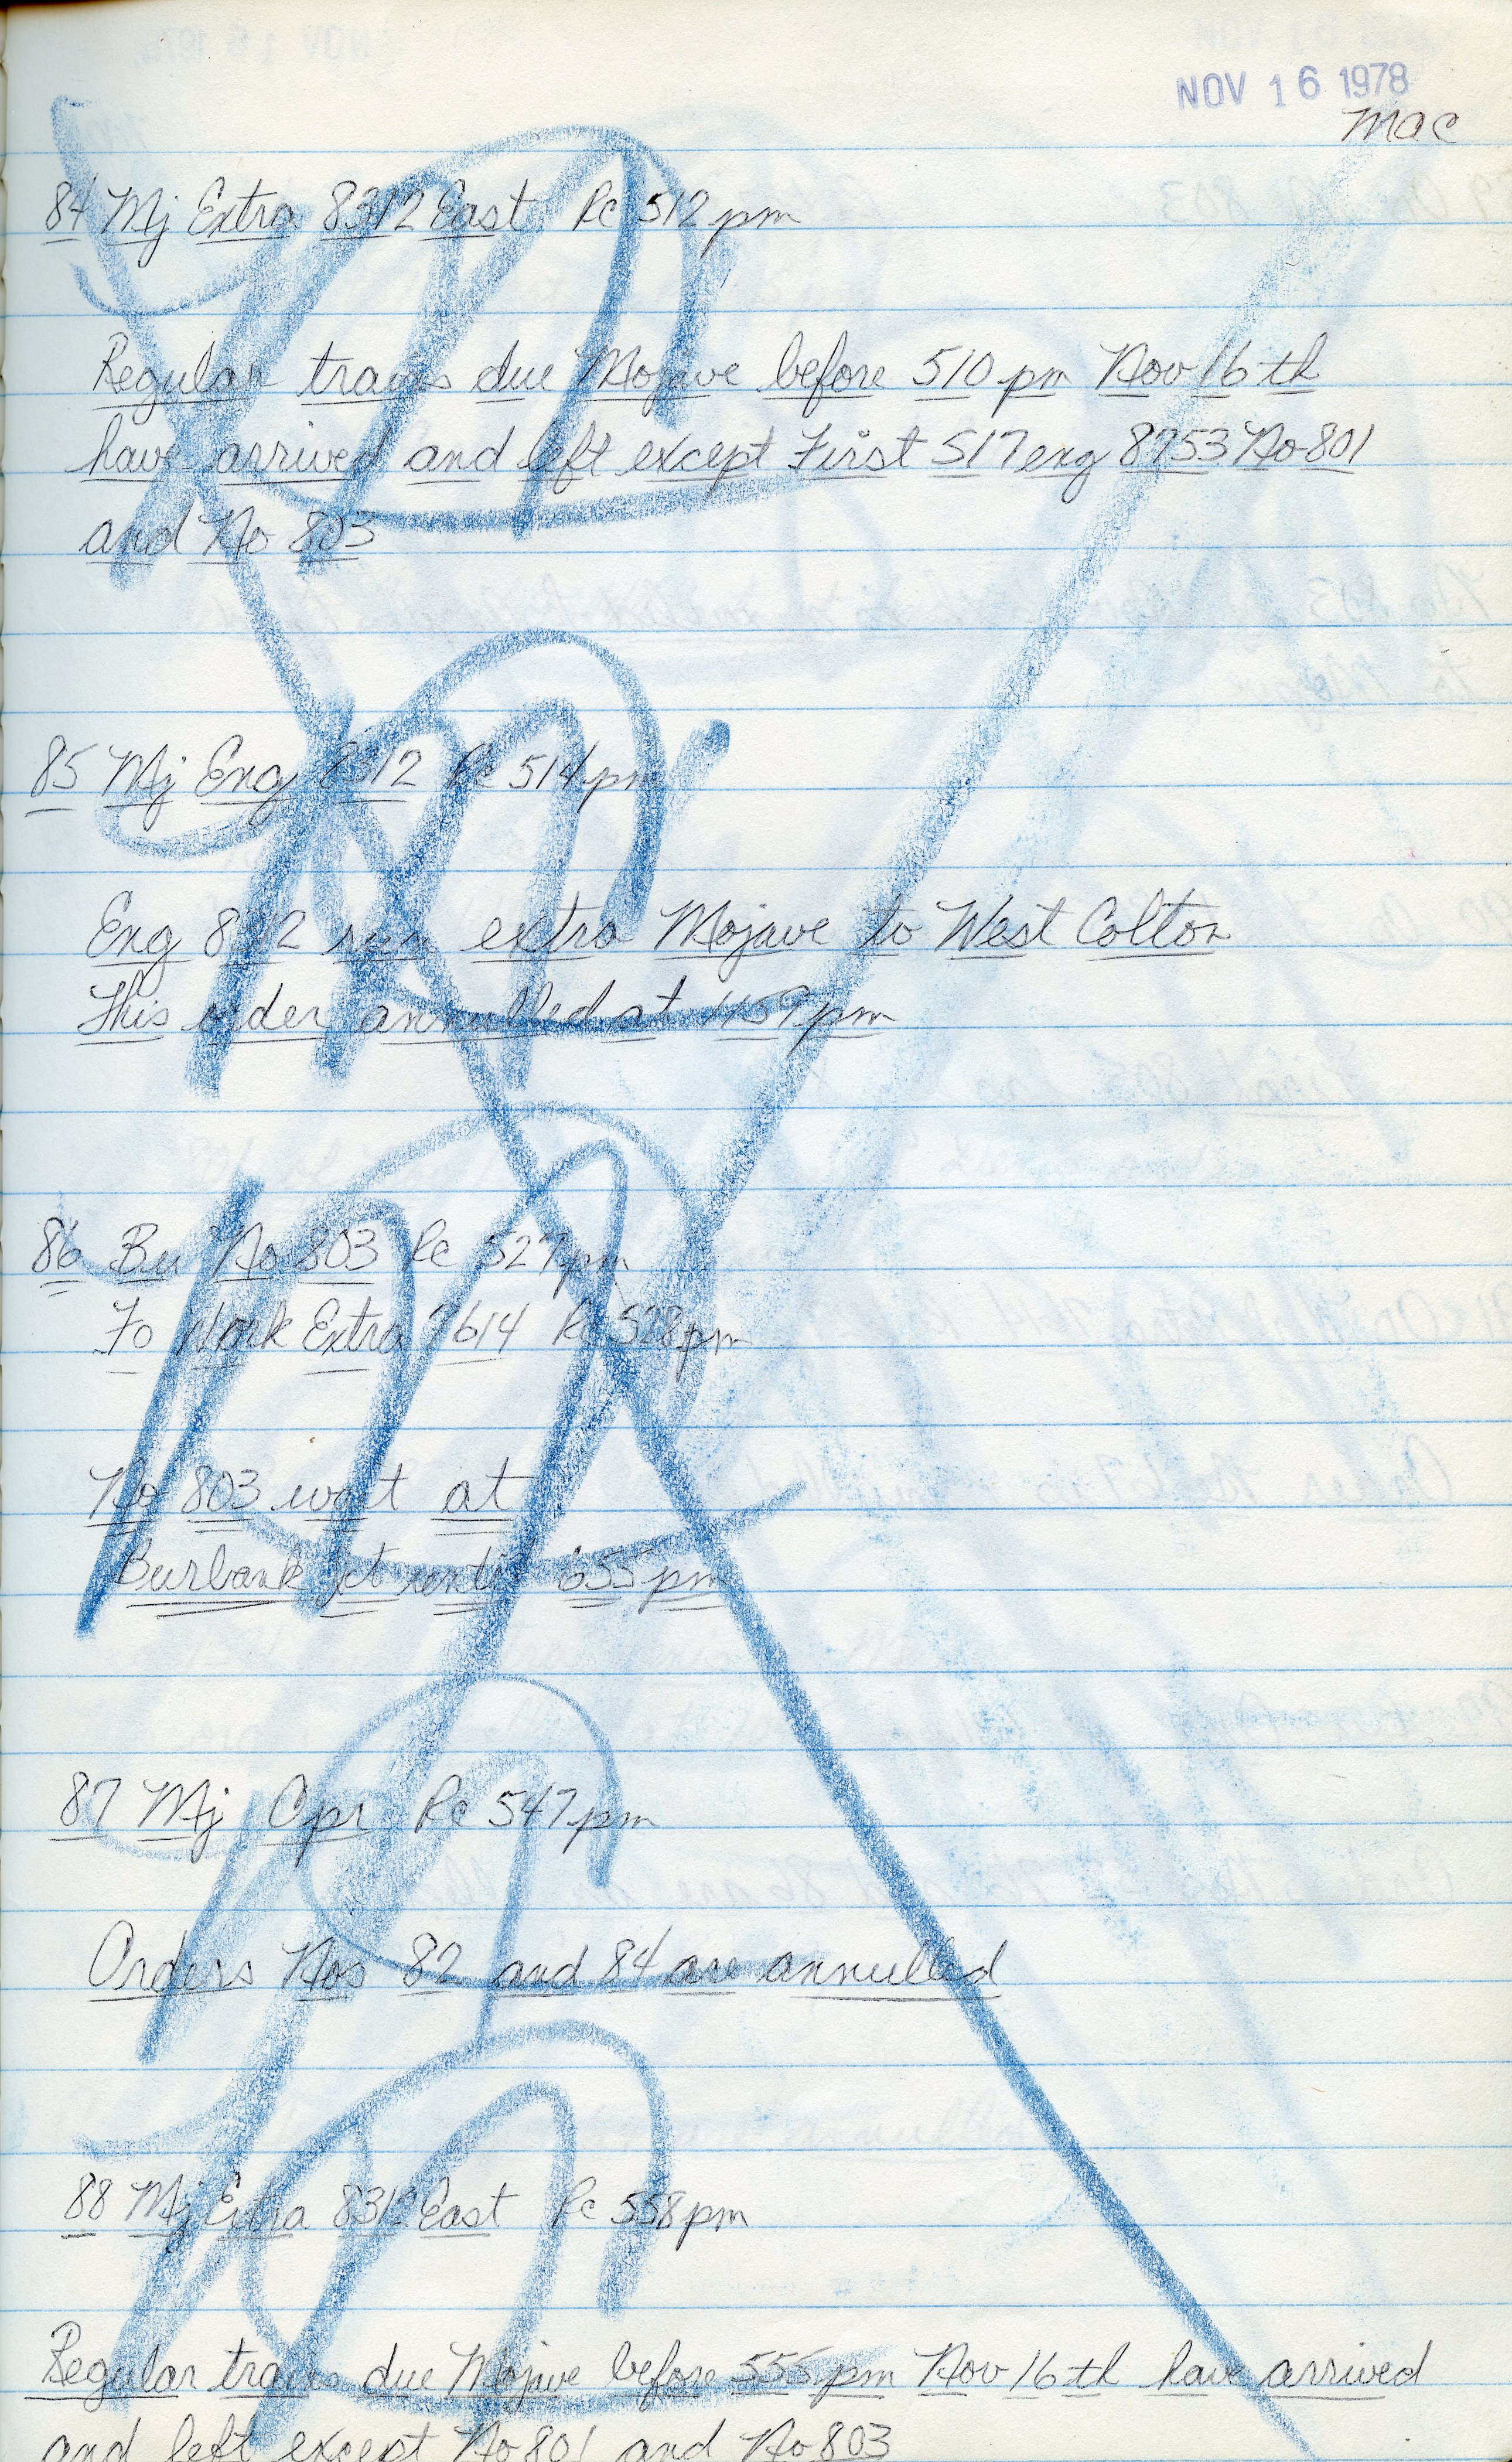 NOV 16 1978
Mac
84 Mj Extra 8312 East Rc 512 pm
Regular trains due Mojave before 510 pm Nov 16 th
have arrived and left except First 517 eng 8753 No 801
and No 803
85 Mj Eng 8312 Rc 514 pm
Eng 8312 run extra Mojave to West Colton
This order annulled at 1159 pm
86 Bu No 803 Rc 527 pm
Fo Work Extra 7614 Rc 528 pm
No 803 wait at
Burbank Jct until 655 pm
87 Mj Opr Rc 547 pm
Orders Nos 82 and 84 are annulled
88 Mj Extra 8312 East Rc 558 pm
Regular trains due Mojave before 555 pm Nov 16 th have arrived
and left except No 801 and No 803